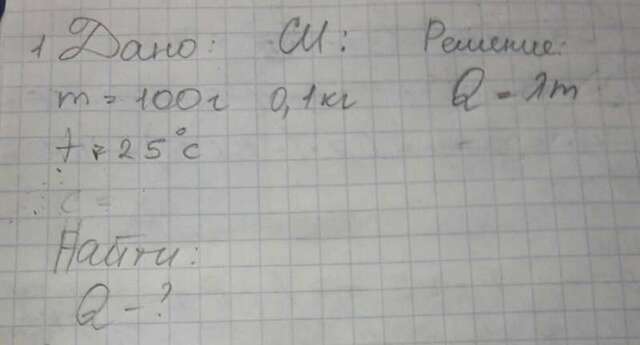 1 Дано: СИ: Решение:
m = 100г 0,1кг Q = λm
t = 25°C
c =
Найти:
Q - ?